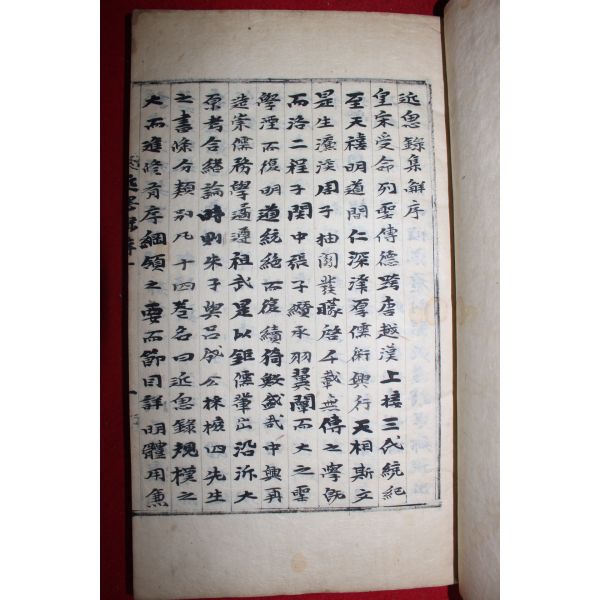 近思錄集解序
皇宋受命列聖傳德跨唐越漢上接三代統紀
至天禧明道間仁深澤厚儒術興行天相斯文
是生濂溪周子抽關發矇啓千載無傳之學旣
而洛二程子關中張子纘承羽翼闡而大之聖
學湮而復明道統絕而復續猗歟盛哉中興再
造崇儒務學遹遵祖武是以鉅儒輩出沿泝大
原考合緒論時則朱子與呂成公採檢四先生
之書條分類別凡十四卷名曰近思錄規模之
大而進修有序綱領之要而節目詳明體用兼
近思錄序 一